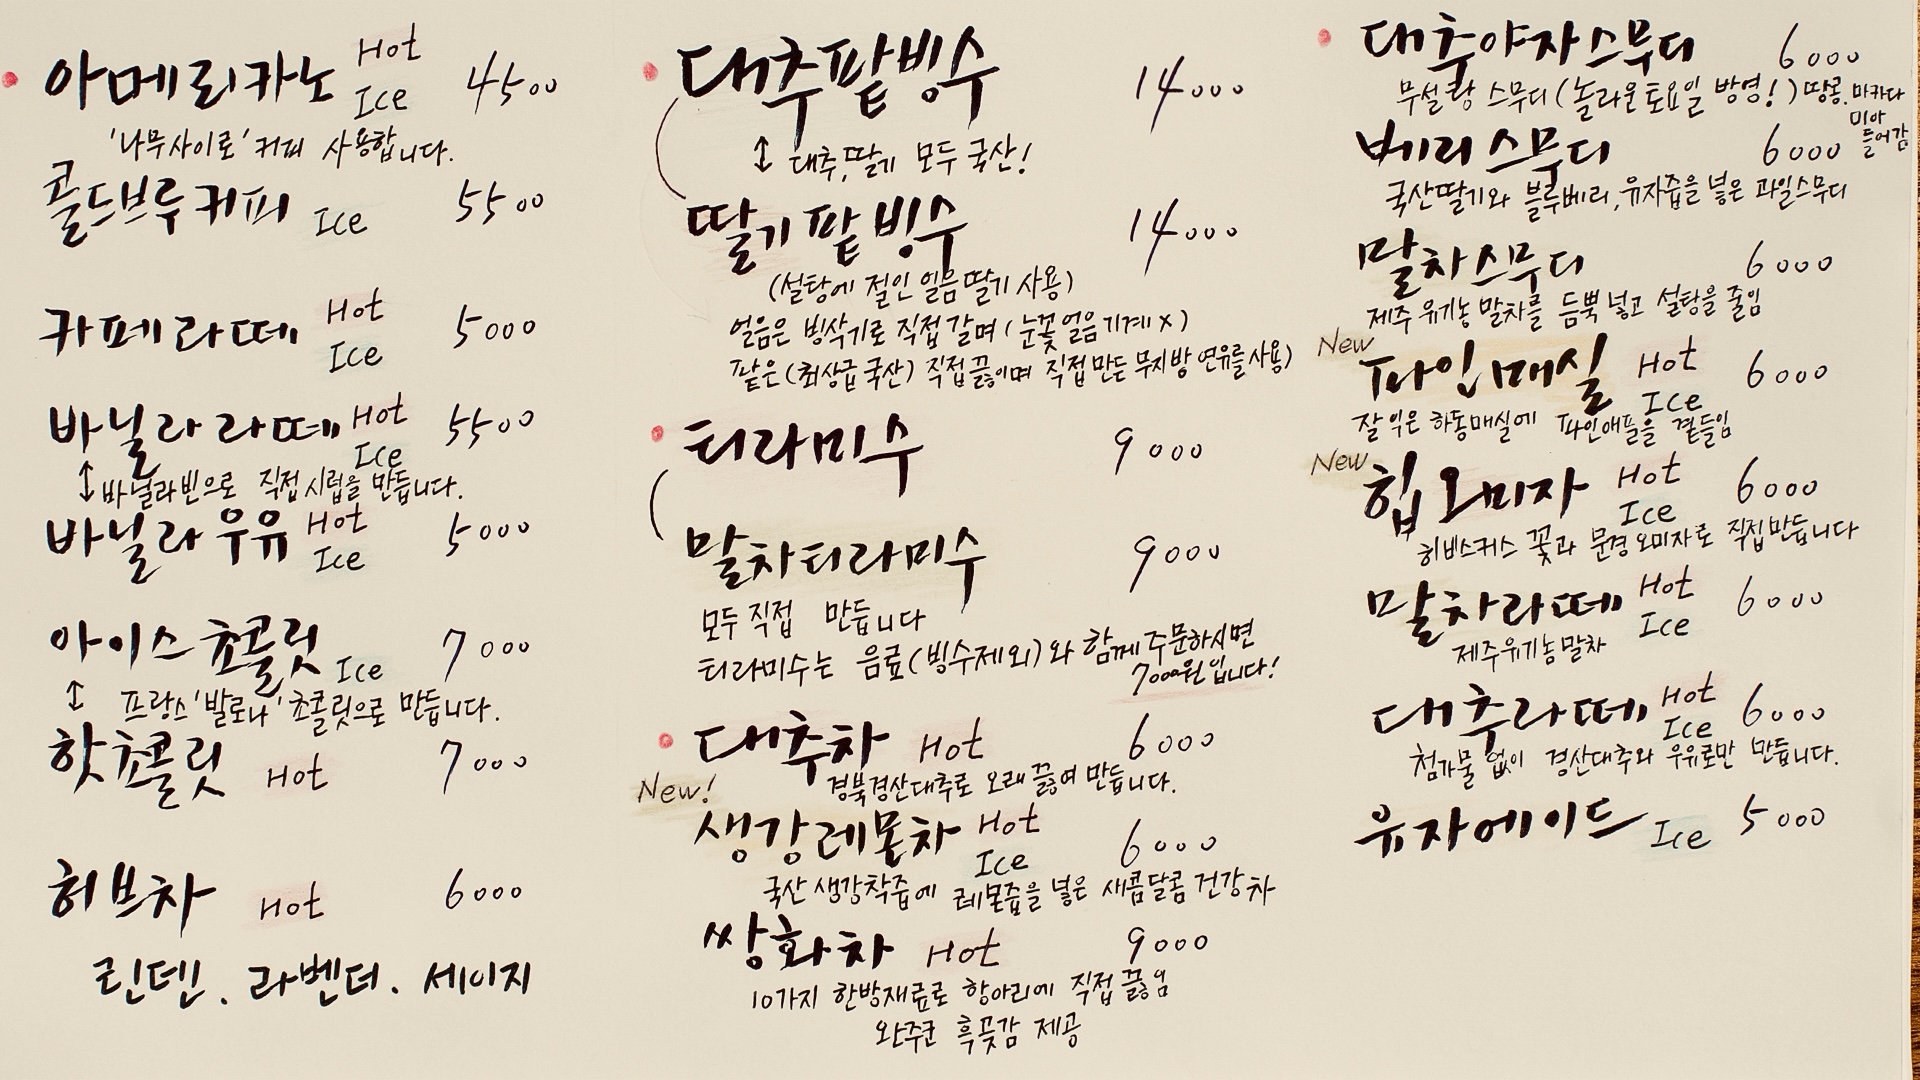 아메리카노 Hot Ice 4500
'나무사이로' 커피 사용합니다.
콜드브루 커피 Ice 5500
카페라떼 Hot Ice 5000
바닐라 라떼 Hot Ice 5500
↕바닐라빈으로 직접 시럽을 만듭니다.
바닐라 우유 Hot Ice 5000
아이스 쵸콜릿 Ice 7000
↕ 프랑스 '발로나' 쵸콜릿으로 만듭니다.
핫쵸콜릿 Hot 7000
허브차 Hot 6000
린덴. 라벤더. 세이지
대추팥빙수 14000
↕ 대추, 딸기 모두 국산!
딸기팥빙수 14000
(설탕에 절인 얼음딸기 사용)
얼음은 빙삭기로 직접 갈며 (눈꽃얼음기계 x)
팥은 (최상급 국산) 직접 끓이며 직접 만든 무지방 연유를 사용)
티라미수 9000
말차티라미수 9000
모두 직접 만듭니다
티라미수는 음료(빙수제외)와 함께 주문하시면
7000원입니다!
대추차 Hot 6000
경북경산대추로 오래 끓여 만듭니다.
New!
생강레몬차 Hot Ice 6000
국산 생강착즙에 레몬즙을 넣은 새콤달콤 건강차
쌍화차 Hot 9000
10가지 한방재료로 항아리에 직접 끓임
완주군 흑곶감 제공
대추야자스무디 6000
무설탕 스무디 (놀라운토요일 방영!) 땅콩. 마카다
미아
들어감
베리스무디 6000
국산딸기와 블루베리, 유자즙을 넣은 과일스무디
말차스무디 6000
제주 유기농 말차를 듬뿍 넣고 설탕을 줄임
New
파인매실 Hot Ice 6000
잘 익은 하동매실에 파인애플을 곁들임
New
힙 오미자 Hot Ice 6000
히비스커스 꽃과 문경 오미자로 직접 만듭니다
말차라떼 Hot Ice 6000
제주유기농말차
대추라떼 Hot Ice 6000
첨가물 없이 경산대추와 우유로만 만듭니다.
유자에이드 Ice 5000